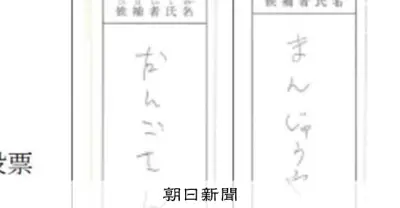 候補者氏名
まんじゅうや
候補者氏名
票
朝日新聞